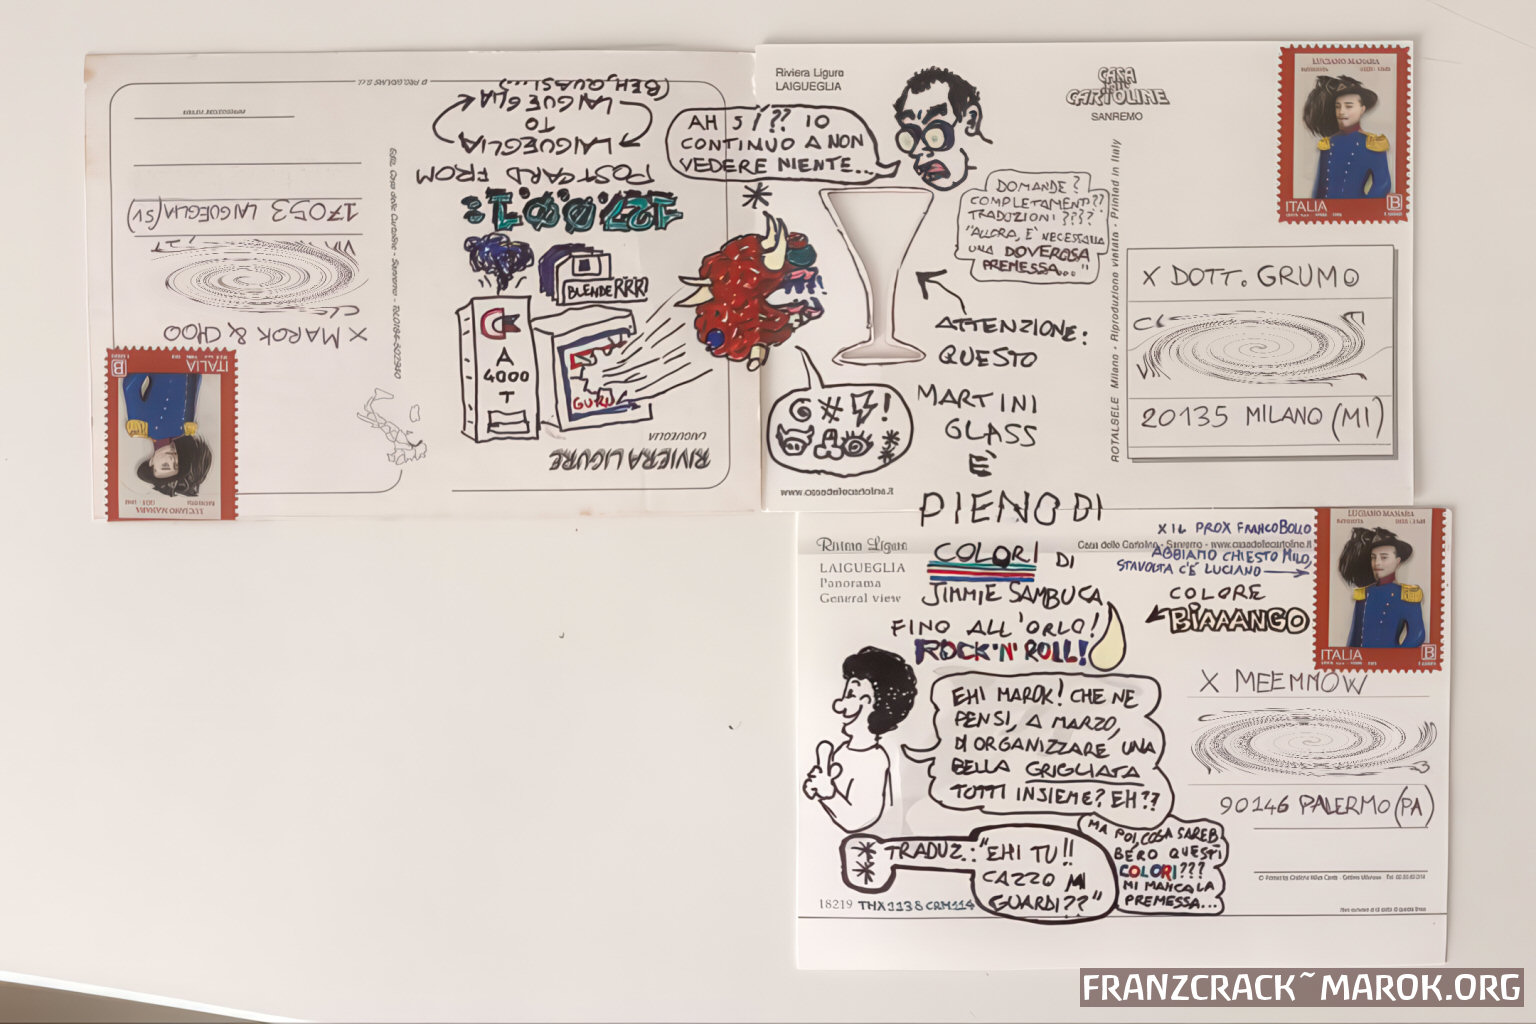 Riviera Ligure
LAIGUEGLIA
AH SÍ?? IO
CONTINUO A NON
VEDERE NIENTE...
*
CASA
delle
CARTOLINE
SANREMO
LUCIANO MANARA
ITALIA
B
DOMANDE?
COMPLETAMENTI??
TRADUZIONI????
"ALLORA, È NECESSARIA
UNA DOVEROSA
PREMESSA..."
X DOTT. GRUMO
20135 MILANO (MI)
ROTALSELE Milano - Riproduzione vietata - Printed in Italy
ATTENZIONE:
QUESTO
MARTINI
GLASS
È
PIENO DI
COLORI DI
JIMMIE SAMBUCA
FINO ALL'ORLO!
ROCK'N'ROLL!
@#!
**
www.casadellecartoline.it
LAIGUEGLIA
TO
LAIGUEGLIA
(BEH, QUASI...)
POSTCARD FROM
X MAROK & CHOO
17053 LAIGUEGLIA (SV)
LUCIANO MANARA
ITALIA
B
BLENDERRRR!
A
4000
T
GURU
RIVIERA LIGURE
LAIGUEGLIA
Riviera Ligure
LAIGUEGLIA
Panorama
General view
Casa delle Cartoline - Sanremo - www.casadellecartoline.it
X IL PROX FRANCOBOLLO
ABBIAMO CHIESTO MILO,
STAVOLTA C'È LUCIANO
COLORE
BIAAANGO
LUCIANO MANARA
ITALIA
B
X MEEMMOW
90146 PALERMO (PA)
EHI MAROK! CHE NE
PENSI, A MARZO,
DI ORGANIZZARE UNA
BELLA GRIGLIATA
TUTTI INSIEME? EH??
** TRADUZ.: "EHI TU!!
CAZZO MI
GUARDI??"
MA POI, COSA SAREB
BERO QUESTI
COLORI???
MI MANCA LA
PREMESSA...
18219 THX1138 CRM114
FRANZCRACK~MAROK.ORG